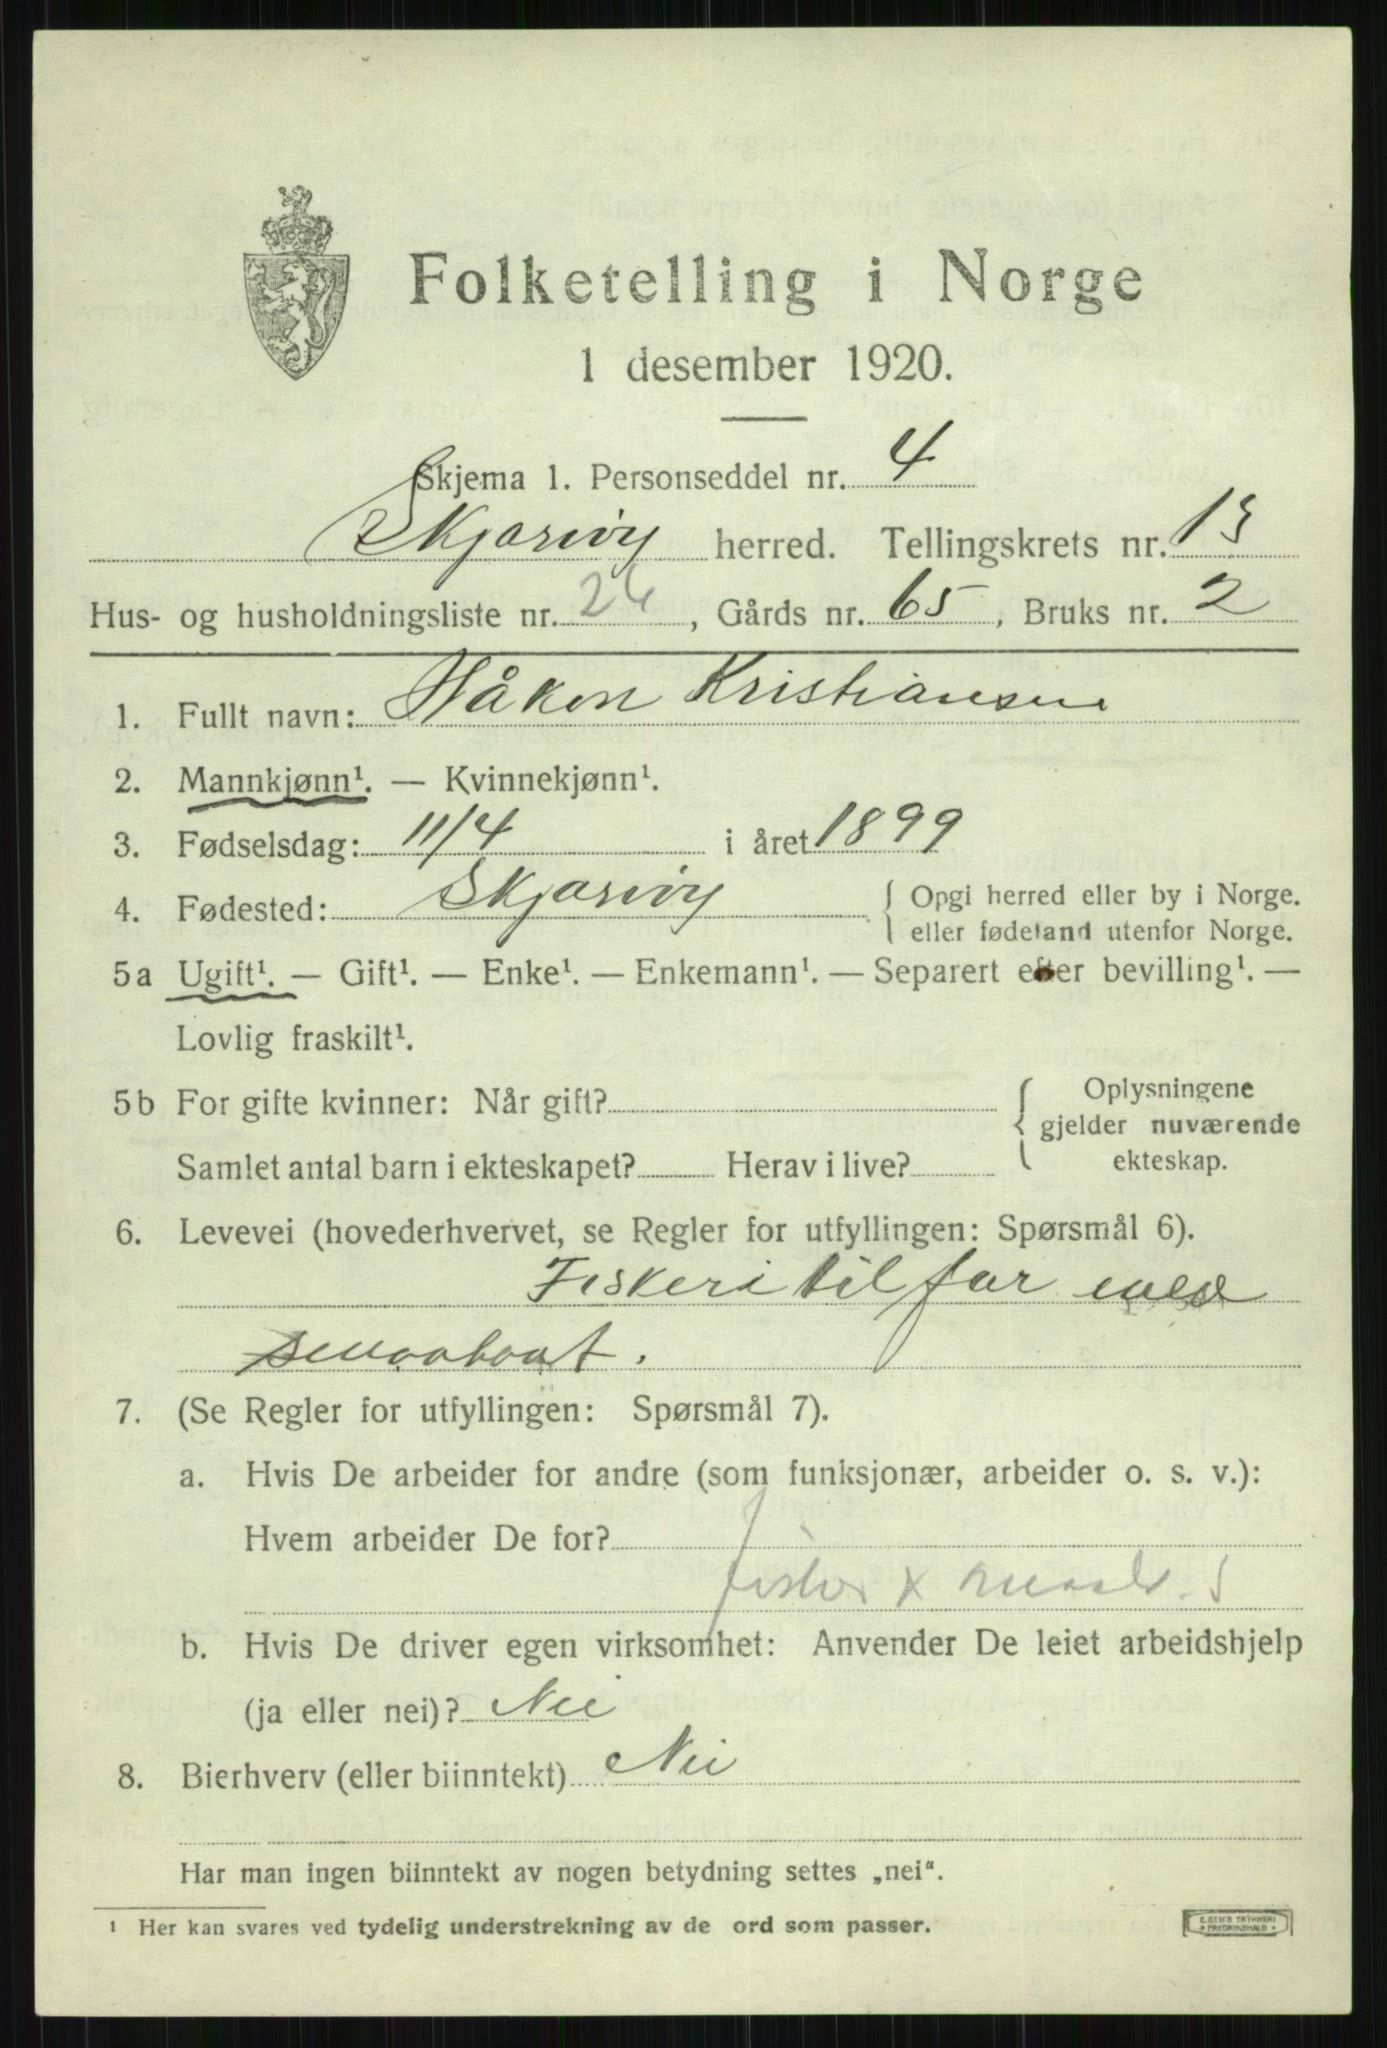 Folketelling i Norge
1 desember 1920.
Skjema 1. Personseddel nr. 4
Skjærvøy herred. Tellingskrets nr. 13
Hus- og husholdningsliste nr. 26, Gårds nr. 65, Bruks nr. 2
1. Fullt navn: Håkon Kristiansen
2. Mannkjønn¹. — Kvinnekjønn¹.
3. Fødselsdag: 11/4 i året 1899
4. Fødested: Skjærvøy { Opgi herred eller by i Norge.
eller fødeland utenfor Norge.
5a Ugift¹. — Gift¹. — Enke¹. — Enkemann¹. — Separert efter bevilling¹. —
Lovlig fraskilt¹.
5b For gifte kvinner: Når gift? { Oplysningene
gjelder nuværende
Samlet antal barn i ekteskapet? Herav i live? ekteskap.
6. Levevei (hovederhvervet, se Regler for utfyllingen: Spørsmål 6).
Fiskeri til far med
smaabaat.
7. (Se Regler for utfyllingen: Spørsmål 7).
a. Hvis De arbeider for andre (som funksjonær, arbeider o. s. v.):
Hvem arbeider De for?
fisker x
b. Hvis De driver egen virksomhet: Anvender De leiet arbeidshjelp
(ja eller nei)? Nei
8. Bierhverv (eller biinntekt) Nei
Har man ingen biinntekt av nogen betydning settes „nei“.
¹ Her kan svares ved tydelig understrekning av de ord som passer.
E. SEM'S TRYKKERI
* FREDRIKSHALD *